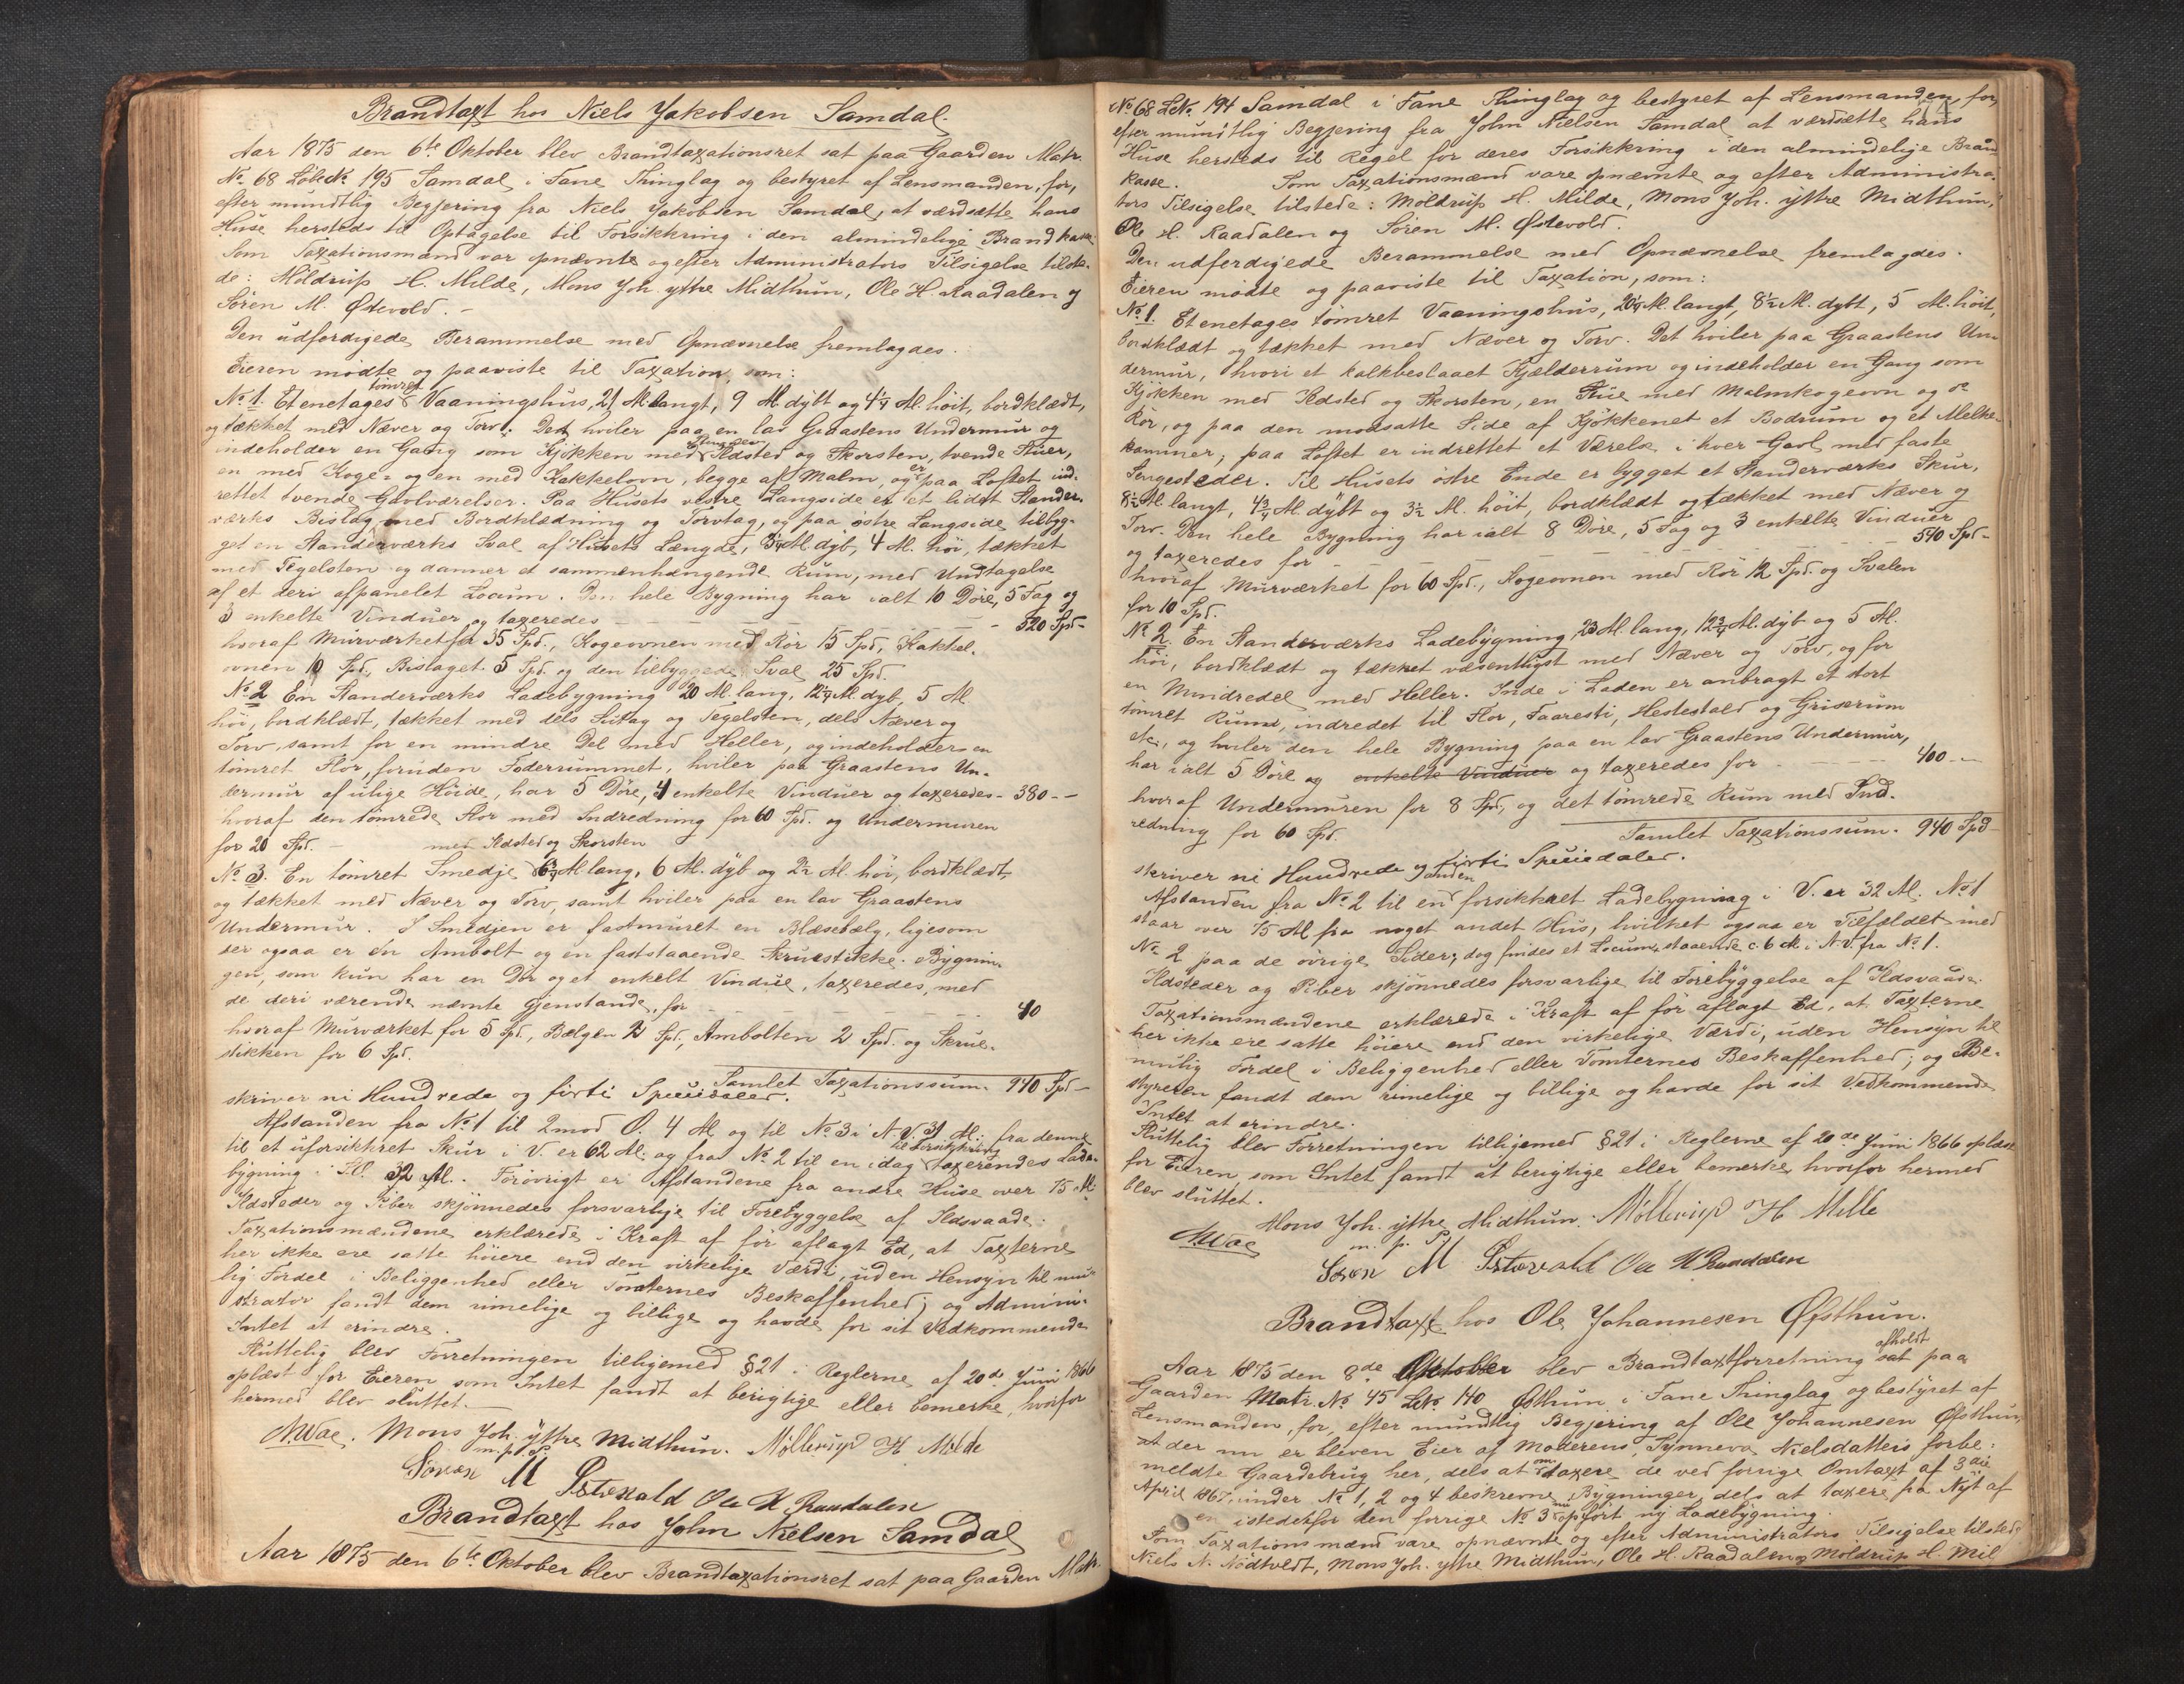 Brandtaxt hos Niels Jakobsen Samdal.
Aar 1875 den 6te Oktober blev Brandtaxationsret sat paa Gaarden Matr.
No 68 Löbe No 195 Samdal i Fane Thinglag og bestyret af Lensmanden, for,
efter mundtlig Begjering fra Niels Jakobsen Samdal, at værdsætte hans
Huse hersteds til Optagelse til Forsikkring i den almindelige Brandkasse.
Som Taxationsmænd var opnævnte og efter Administrators Tilsigelse tilste-
de: Möldrup H. Milde, Mons Joh. yttre Midthun, Ole H. Raadalen og
Sören M. Østevold. -
Den udferdigede Berammelse med Opnævnelse fremlagdes.
Eieren mödte og paaviste til Taxation, som:
No 1. Et enetages tömret Vaaningshus, 21 Al. langt, 9 Al. dybt og 4 1/4 Al. höit, bordklædt,
og tækket med Næver og Torv. Det hviler paa en lav Graastens Undermur og
indeholder en Gang som Kjökken med Ildsted og Skorsten, tvende Stuer,
en med Koge- og en med Kakkelovn, begge af Malm, og er paa Loftet ind-
rettet tvende Gavlværelser. Paa Husets vestre Langside er et lidet Stander-
værks Bislag med Bordklædning og Torvtag, og paa östre Langside tilbyg-
get en Standerværks Sval af Husets Længde, 3 1/4 Al. dyb, 4 Al. höi, tækket
med Tegelsten og danner et sammenhængende Rum, med Undtagelse
af et deri afpanelet Locum. Den hele Bygning har ialt 10 Döre, 5 Fag og
3 enkelte Vinduer og taxeredes - - - 520 Spd -
hvoraf Murværket for 35 Spd., Kogeovnen med Rör 15 Spd, Kakkel-
ovnen 10 Spd, Bislaget 5 Spd og den tilbyggede Sval 25 Spd.
No 2 En Standerværks Ladebygning 20 Al. lang, 12 3/4 Al. dyb, 5 Al.
höi, bordklædt, tækket med dels Sutag og Tegelsten, dels Næver og
Torv, samt for en mindre Del med Heller, og indeholder en
tömret Flor, foruden Foderrummet, hviler paa Graastens Un-
dermur af ulige Höide, har 5 Döre, 4 enkelte Vinduer og taxeredes - 380 - -
hvoraf den tömrede Flor med Indredning for 60 Spd. og Undermuren
for 20 Spd. - med Ildsted og Skorsten
No 3. En tömret Smedje 6 3/4 Al. lang, 6 Al. dyb og 2 1/2 Al. höi, bordklædt,
og tækket med Næver og Torv, samt hviler paa en lav Graastens
Undermur. I Smedjen er fastmuret en Blæsebælg, ligesom
der ogsaa er en Ambolt og en faststaaende Skruestikke. Bygnin-
gen, som kun har en Dör og et enkelt Vindue, taxeredes, med
de deri værende nævnte Gjenstande, for - - - 40
hvoraf Murværket for 5 Spd., Bælgen 2 Spd. Ambolten 2 Spd. og Skrue-
stikken for 6 Spd.
Samlet Taxationssum. 940 Spd -
skriver ni Hundrede og firti Speciedaler.
Afstanden fra No 1 til 2 mod O. 4 Al og til No 3 i N.V. 31 Al.; fra denne
til et uforsikkret Skur i V. er 62 Al. og fra No 2 til en idag til Forsikkring taxerendes Lade-
bygning i S.O. 32 Al. Forövrigt er Afstandene fra andre Huse over 75 Al.
Ildsteder og Piber skjönnedes forsvarlige til Forebyggelse af Ildsvaade.
Taxationsmændene erklærede i Kraft af för aflagt Ed, at Taxterne
her ikke ere satte höiere end den virkelige Værdi, uden Hensyn til mu-
lig Fordel i Beliggenhed eller Tomternes Beskaffenhed; og Admini-
strator fandt dem rimelige og billige og havde for sit Vedkommende
Intet at erindre.
Sluttelig blev Forretningen tilligemed §21 i Reglerne af 20de Juni 1866
oplæst for Eieren som Intet fandt at berigtige eller bemerke, hvorfor
hermed blev sluttet.
Mons Joh. yttre Midthun. Möllerup H Milde
m. p. P.
Sören M Østevold Ole H. Raadalen
Brandtaxt hos John Nielsen Samdal
Aar 1875 den 6te Oktober blev Brandtaxationsret sat paa Gaarden Matr.
No 68 LNo. 194 Samdal i Fane Thinglag og bestyret af Lensmanden, for,
efter mundtlig Begjering fra John Nielsen Samdal at værdsætte hans
Huse hersteds til Regel for deres Forsikkring i den almindelige Brand-
kasse. Som Taxationsmænd vare opnævnte og efter Administra-
tors Tilsigelse tilstede: Möldrup H. Milde, Mons Joh. yttre Midthun,
Ole H. Raadalen og Sören M. Østevold.
Den udferdigede Berammelse med Opnævnelse fremlagdes.
Eieren mödte og paaviste til Taxation, som:
No 1. Et enetages tömret Vaaningshus, 20 1/4 Al. langt, 8 1/2 Al. dybt, 5 Al. höit,
bordklædt og tækket med Næver og Torv. Det hviler paa Graastens Un-
dermur, hvori et kalkbeslaaet Kjælderrum og indeholder en Gang som
Kjökken med Ildsted og Skorsten, en Stue med Malmkogeovn og
Rör, og paa den modsatte Side af Kjökkenet et Bodrum og et Melke-
kammer, paa Loftet er indrettet et Værelse i hver Gavl med faste
Sengesteder. Til Husets östre Ende er bygget et Standerværks Skur,
8 1/2 Al. langt, 4 3/4 Al. dybt og 3 1/2 Al. höit, bordklædt og tækket med Næver og
Torv. Den hele Bygning har ialt 8 Döre, 5 Fag og 3 enkelte Vinduer
og taxeredes for - - - 540 Spd -
hvoraf Murværket for 60 Spd., Kogeovnen med Rör 12 Spd. og Svalen
for 10 Spd.
No 2. En Standerværks Ladebygning, 23 Al. lang, 12 3/4 Al. dyb og 5 Al.
höi, bordklædt og tækket væsentligst med Næver og Torv, og for
en Mindredel med Heller. Inde i Laden er anbragt et stort
tömret Rum, indredet til Flor, Faaresti, Hestestald og Griserum
etc., og hviler den hele Bygning paa en lav Graastens Undermur,
har ialt 5 Döre og enkelte Vinduer og taxeredes for - - - 400 - -
hvoraf Undermuren for 8 Spd., og det tömrede Rum med Ind-
redning for 60 Spd.
Samlet Taxationssum. 940 Spd -
skriver ni Hundrede og firti Speciedaler.
Afstanden fra No 2 til en anden forsikkret Ladebygning i V. er 32 Al. No 1
staar over 75 Al fra noget andet Hus, hvilket ogsaa er Tilfældet med
No 2 paa de övrige Sider; dog findes et Locum, staaende c. 6 Al. i N.V. fra No 1.
Ildsteder og Piber skjönnedes forsvarlige til Forebyggelse af Ildsvaade.
Taxationsmændene erklærede i Kraft af för aflagt Ed, at Taxterne
her ikke ere satte höiere end den virkelige Værdi, uden Hensyn til
mulig Fordel i Beliggenhed eller Tomternes Beskaffenhed; og Be-
styreren fandt dem rimelige og billige og havde for sit Vedkommende
Intet at erindre.
Sluttelig blev Forretningen tilligemed §21 i Reglerne af 20de Juni 1866 oplæst
for Eieren, som Intet fandt at berigtige eller bemerke, hvorfor hermed
blev sluttet.
Mons Joh. yttre Midthun. Möllerup H Milde
m. p. P.
Sören M Østevold Ole H Raadalen
Brandtaxt hos Ole Johannesen Øfsthun.
Aar 1875 den 8de Oktober blev Brandtaxtforretning afholdt sat paa
Gaarden Matr. No 45 LNo. 140 Øfsthun i Fane Thinglag og bestyret af
Lensmanden, for, efter mundtlig Begjering af Ole Johannesen Øfsthun,
at der nu er bleven Eier af Moderens, Synneva Nielsdatters forbe-
meldte Gaardebrug her, dels at omtaxere de ved forrige Omtaxt af 3die
April 1867 under No 1, 2 og 4 beskrevne Bygninger, dels at taxere fra Nyt af
en istedetfor den forrige No 3 nu opfört ny Ladebygning.
Som Taxationsmænd vare opnævnte og efter Administrators Tilsigelse tilstede
Niels N. Nödtvedt, Mons Joh. yttre Midthun, Ole H. Raadalen og Möldrup H. Mil